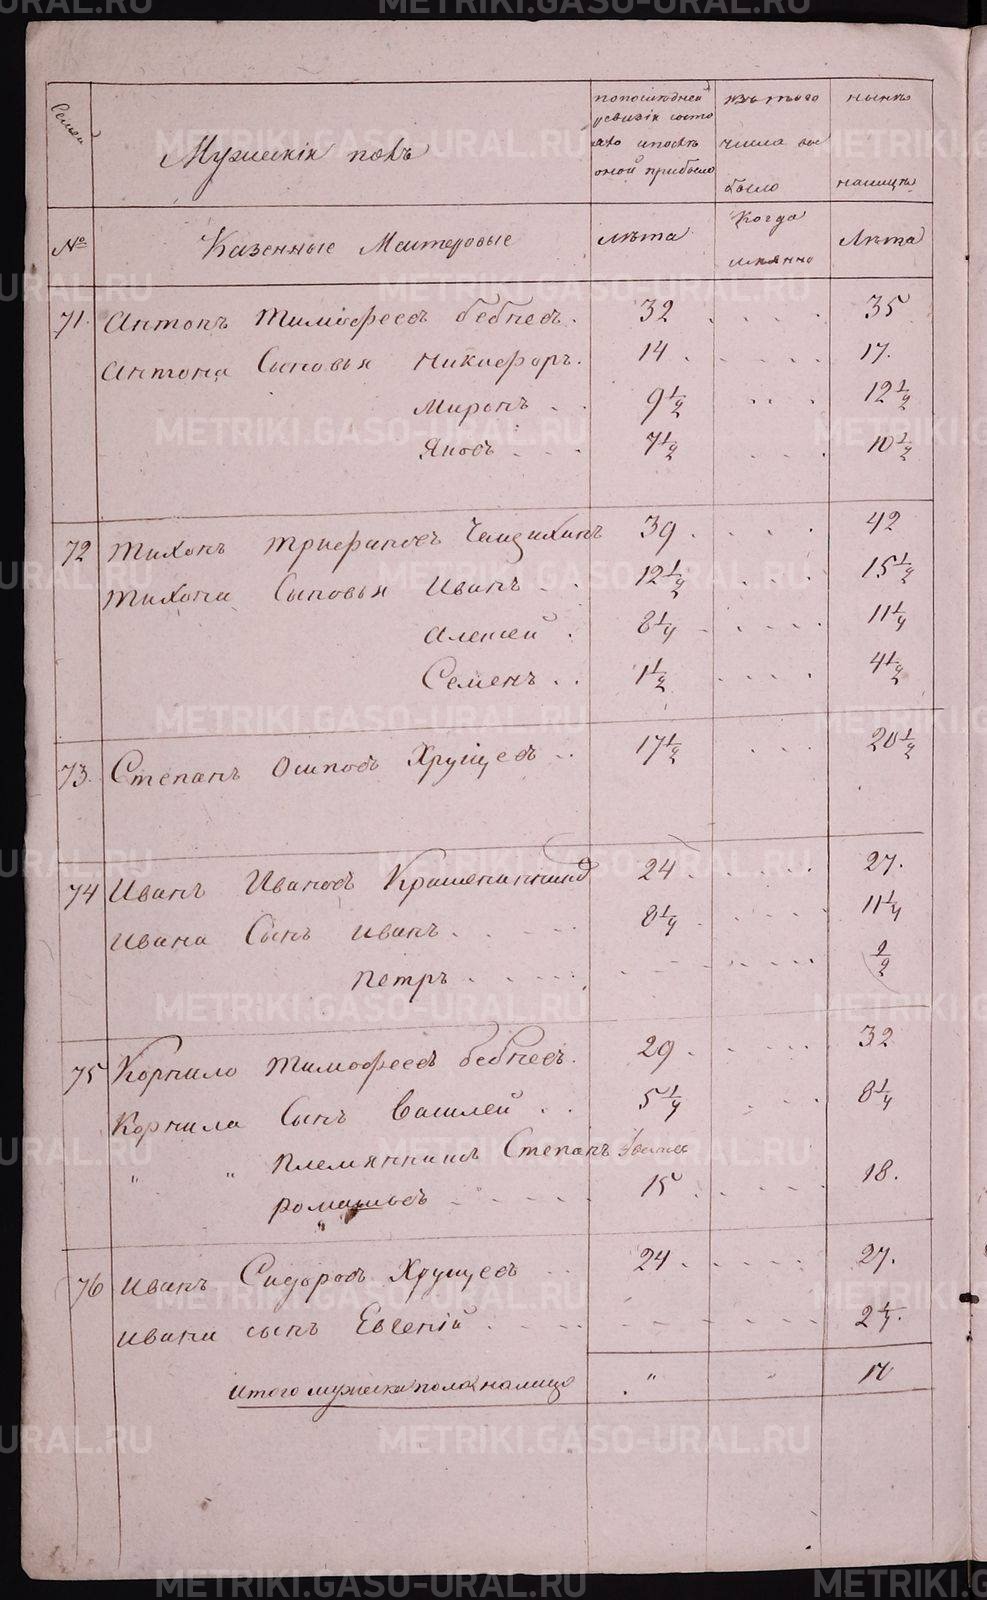 Семьи
Мужескiй полъ
попоследней
ревизiи состо
яло ипосле
оной прибыло
изъ того
числа вы
было
ныне
налицо
№
Казенные Мастеровые
лета
Когда
имянно
Лета
71. Антонъ Тимофеевъ бебневъ. 32 35
Антона Сыновья Никифоръ. 14 17.
Миронъ 9 1/2 12 1/2
Яковъ 7 1/2 10 1/2
72 Тихонъ Трифановъ 39 42
Тихона Сыновья Иванъ 12 1/2 15 1/2
Алексей 8 1/4 11 1/4
Семенъ 1 1/2 4 1/2
73. Степанъ Осиповъ Хрущевъ 17 1/2 20 1/2
74 Иванъ Ивановъ 24 27.
Ивана Сынъ Иванъ 8 1/4 11 1/4
Петръ 1/2
75 Корнило Тимофеевъ бебневъ. 29 32
Корнила Сынъ Василей 5 1/4 8 1/4
" " Племянникъ Степанъ
романовъ 15 18.
76 Иванъ Сидоровъ Хрущевъ 24 27.
Ивана сынъ Евгенiй
итого мужеска пола налицо " "
METRIKI.GASO-URAL.RU